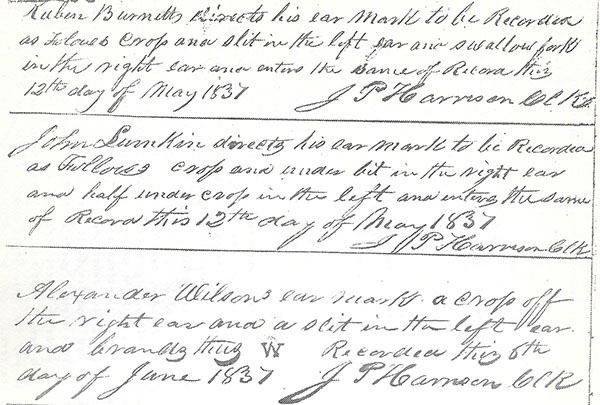 Ruben Burnetts directs his ear mark to be Recorded
as Folows Crop and slit in the left ear and swallow fork
in the right ear and enters the same of Record this
12th day of May 1837 J P Harrison Clk
John Lumkin directs his ear mark to be Recorded
as Follows crop and under bit in the right ear
and half under crop in the left and enters the same
of Record this 12th day of May 1837
J P Harrison Clk
Alexander Wilsons ear mark a crop off
the right ear and a slit in the left ear
and brands thus W Recorded this 6th
day of June 1837 J P Harrison Clk